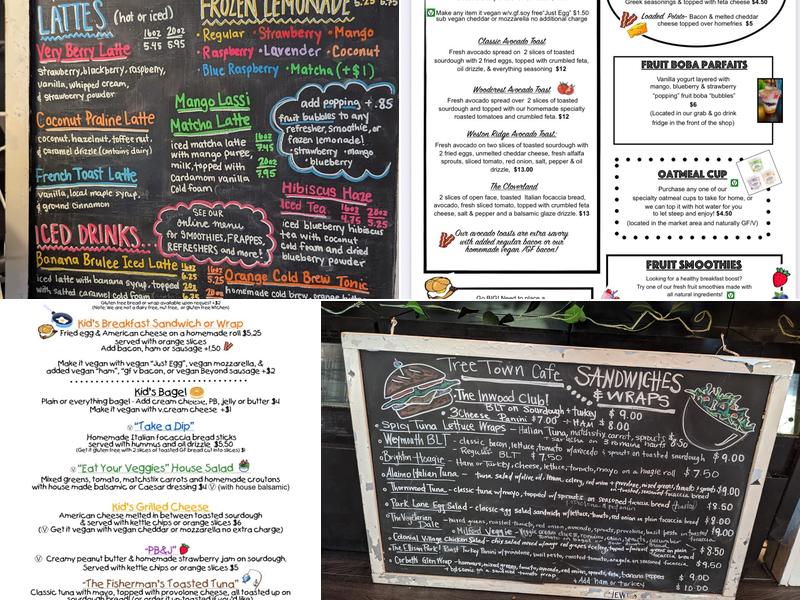 LATTES (hot or iced)
16oz 20oz
5.45 5.95
Very Berry Latte
strawberry, blackberry, raspberry,
vanilla, whipped cream,
& strawberry powder
Coconut Praline Latte
coconut, hazelnut, toffee nut,
& caramel drizzle (contains dairy)
French Toast Latte
vanilla, local maple syrup,
& ground cinnamon
ICED DRINKS...
Banana Brulee Iced Latte
16oz 20oz
5.25 6.25
iced latte with banana syrup, topped
with salted caramel cold foam
FROZEN LEMONADE 5.25 6.75
• Regular • Strawberry • Mango
• Raspberry • Lavender • Coconut
• Blue Raspberry • Matcha (+$1)
Mango Lassi
Matcha Latte
iced matcha latte
with mango puree,
milk, topped with
cardamom vanilla
cold foam
16oz
7.45
20oz
7.95
add popping +.85
fruit bubbles to any
refresher, smoothie, or
frozen lemonade!
• strawberry • mango
• blueberry
SEE OUR
online menu
for SMOOTHIES, FRAPPES,
REFRESHERS and more!
Hibiscus Haze
Iced Tea
16oz 20oz
4.75 5.25
iced blueberry hibiscus
tea with coconut
cold foam and dried
blueberry powder
Orange Cold Brew Tonic
homemade cold brew, orange
Make any item vegan w/v.gf.soy free"Just Egg" $1.50
sub vegan cheddar or mozzarella no additional charge
Classic Avocado Toast
Fresh avocado spread on 2 slices of toasted
sourdough with 2 fried eggs, topped with crumbled feta,
oil drizzle, & everything seasoning $12
Woodcrest Avocado Toast
Fresh avocado spread over 2 slices of toasted
sourdough and topped with our homemade specialty
roasted tomatoes and crumbled feta. $12
Weston Ridge Avocado Toast:
Fresh avocado on two slices of toasted sourdough with
2 fried eggs, unmelted cheddar cheese, fresh alfafa
sprouts, sliced tomato, red onion, salt, pepper & oil
drizzle, $13.00
The Cloverland
2 slices of open face, toasted Italian foccacia bread,
avocado, fresh sliced tomato, topped with crumbled feta
cheese, salt & pepper and a balsamic glaze drizzle. $13
Our avocado toasts are extra savory
with added regular bacon or our
homemade vegan /GF bacon!
Go BIG! Need to place a
Greek seasonings & topped with feta cheese $4.50
Loaded Potato- Bacon & melted cheddar
cheese topped over homefries $5
FRUIT BOBA PARFAITS
Vanilla yogurt layered with
mango, blueberry & strawberry
"popping" fruit boba "bubbles"
$6
(Located in our grab & go drink
fridge in the front of the shop)
OATMEAL CUP
Purchase any one of our
specialty oatmeal cups to take for home, or
we can top it with hot water for you
to let steep and enjoy! $4.50
(located in the market area and naturally GF/V)
FRUIT SMOOTHIES
Looking for a healthy breakfast boost?
Try one of our fresh fruit smoothies made with
all natural ingredients!
Gluten free bread or wrap available upon request +$2
(Note: We are not a dairy free, nut free, or gluten free kitchen)
Kid's Breakfast Sandwich or Wrap
Fried egg & American cheese on a homemade roll $5.25
served with orange slices
Add bacon, ham or sausage +1.50
Make it vegan with vegan "Just Egg", vegan mozzarella, &
added vegan "ham", "gf v bacon, or vegan Beyond sausage +$2
Kid's Bagel
Plain or everything bagel - Add cream cheese, PB, jelly or butter $4
Make it vegan with v.cream cheese +$1
"Take a Dip"
Homemade Italian focaccia bread sticks
served with hummus and oil drizzle $5.50
(Get it gluten free with 2 slices of toasted GF bread cut into slices) $1
"Eat Your Veggies" House Salad
Mixed greens, tomato, matchstix carrots and homemade croutons
with house made balsamic or Caesar dressing $4 Ⓥ (with house balsamic)
Kid's Grilled Cheese
American cheese melted in between toasted sourdough
& served with kettle chips or orange slices $6
(Ⓥ Get it vegan with vegan cheddar or mozzarella no extra charge)
"PB&J"
Ⓥ Creamy peanut butter & homemade strawberry jam on sourdough
Served with kettle chips or orange slices $5
"The Fisherman's Toasted Tuna"
Classic tuna with mayo, topped with provolone cheese, all toasted up on
sourdough bread! (or order it un-toasted if you'd like)
Tree Town Cafe SANDWICHES
& WRAPS
• The Inwood Club!
BLT on Sourdough + turkey $ 9.00
• 3 Cheese Panini $7.00 + HAM $ 8.00
• Spicy Tuna Lettuce Wraps - Italian Tuna, matchstix carrot, sprouts $8.50
• Weymouth BLT - classic bacon, lettuce, tomato w/avocado & sprouts on toasted sourdough $9.00
Regular BLT $7.50
• Brighton Hoagie - Ham or Turkey, cheese, lettuce, tomato, mayo on a hoagie roll $7.50
• Alamo Italian Tuna -
• Thornwood Tuna - classic tuna w/mayo, topped w/sprouts on seasoned foccacia bread $9.00
• Park Lane Egg Salad - classic egg salad sandwich w/lettuce, tomato, red onion on plain foccacia bread $8.50
• The Vegetarian Dale - $9.00
• Milford Veggie -
• Colonial Village Chicken Salad - $8.50
• The Ellison Park! $9.50
• Corbett Glen Wrap - hummus, mixed greens, tomato, avocado, red onion, sprouts, feta, banana peppers $ 9.00
+ Add ham or turkey $ 10.00